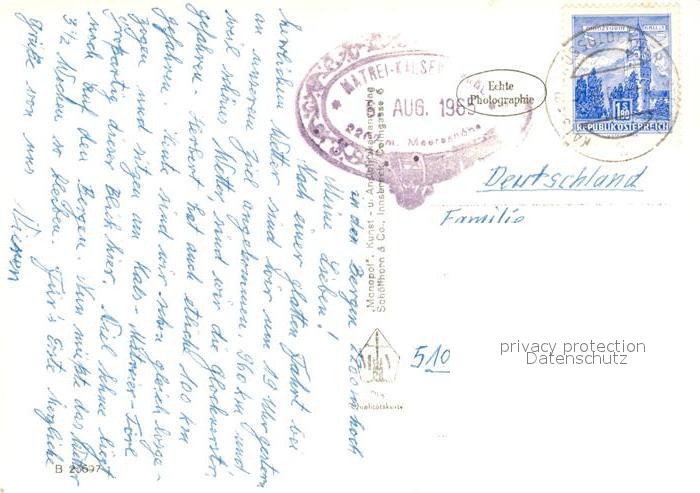 in den Bergen 2200 m hoch
Meine Lieben!
Nach einer glatten Fahrt bei
herrlichem Wetter sind wir um 19 Uhr gestern
an unserem Ziel angekommen. 960 km und
weil schönes Wetter sind wir die Glocknerstr.
gefahren. Dieter hat auch etliche 100 km
gefahren. Heute sind wir schon gleich losge-
zogen und sitzen am Kals-Matreier-Törl.
Großartig der Blick hier. Viel Schnee liegt
noch auf den Bergen. Nun müßte das Wetter
3 1/2 Wochen so bleiben. Für's Erste herzliche
Grüße von uns Vieren
MATREI-KALSER
AUG. 1965
2206 m. Meereshöhe
Echte
Photographie
1S80
REPUBLIK ÖSTERREICH
"Monopol", Kunst- u. Ansichtskartenverlag
Schöllhorn & Co., Innsbruck
Deutschland
Familie
510
Qualitätskarte
privacy protection
Datenschutz
B 20697